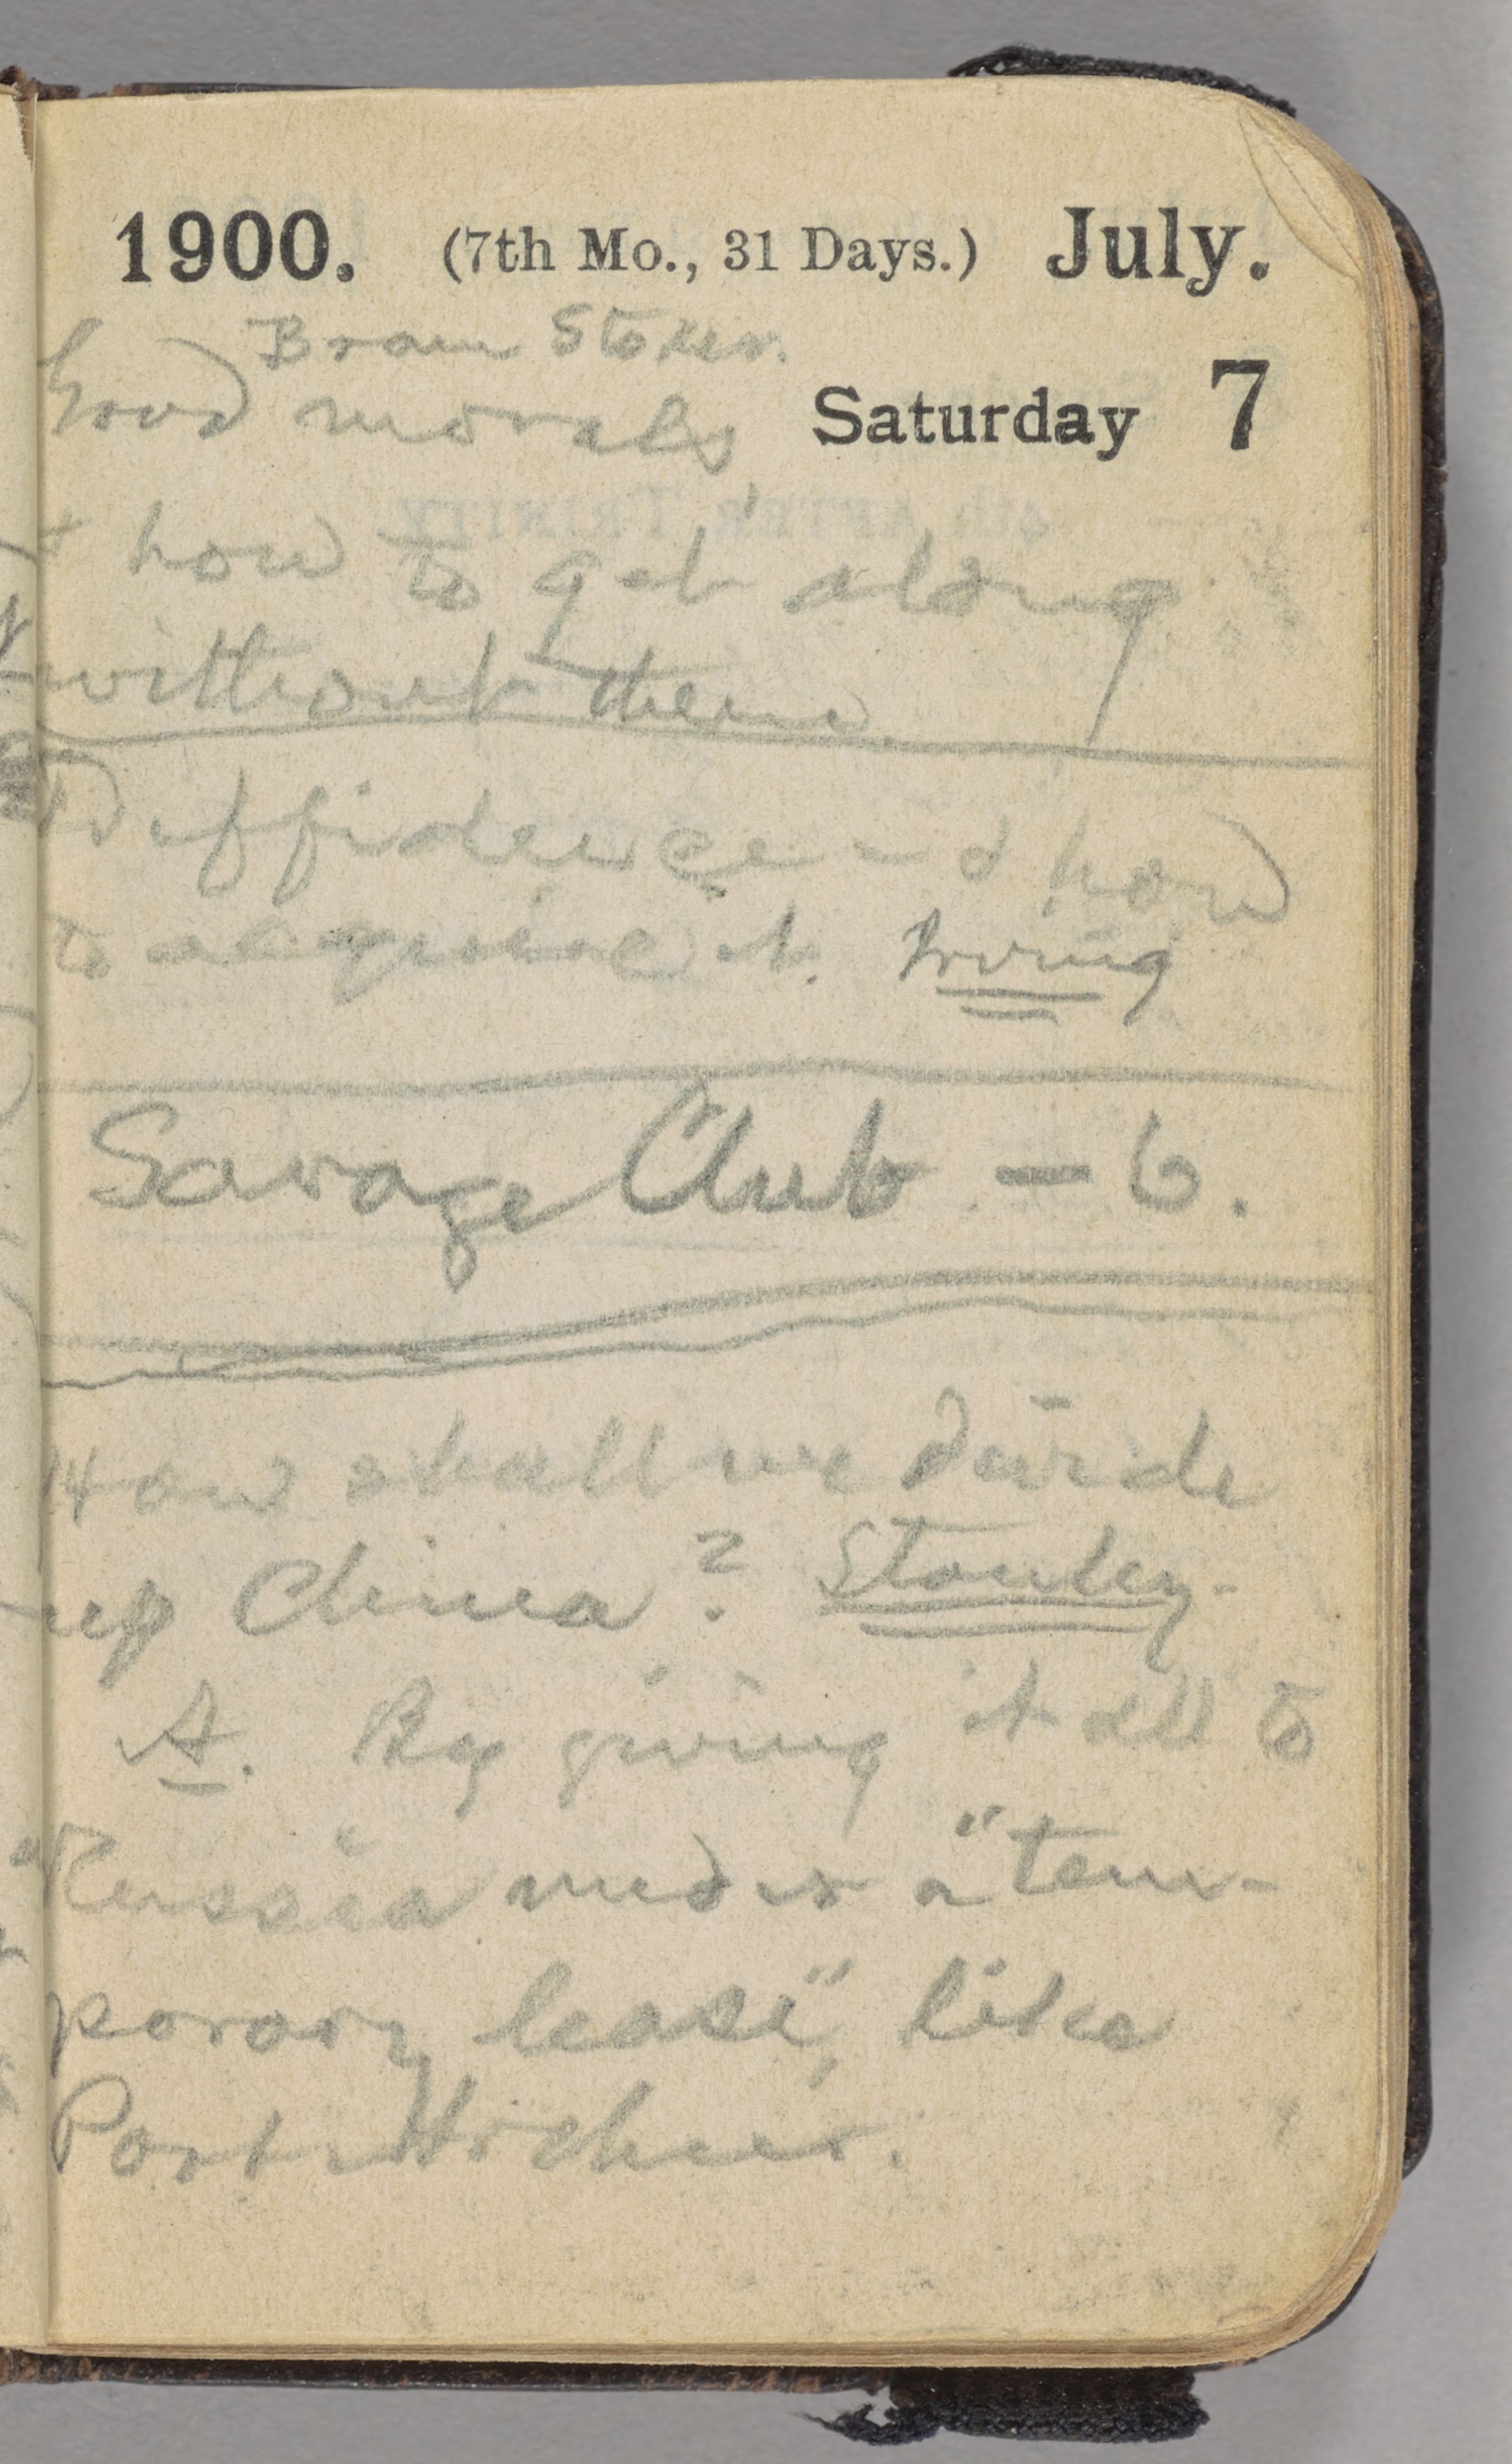 1900. (7th Mo., 31 Days.) July.
Bram Stoker.
Good morals
Saturday 7
& how to get along
without them.
Diffidence - & how
to acquire it. Irving
Savage Club - 6.
How shall we divide
up China? Stanley.
A. By giving it all to
Russia under a "tem-
porary lease", like
Port Arthur.